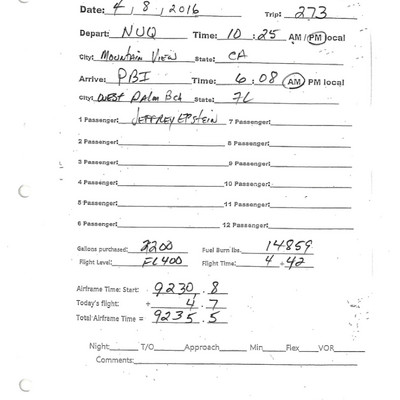 Date: 4 / 8 / 2016 Trip: 273
Depart: NUQ Time: 10 : 25 AM /PM local
City: Mountain View State: CA
Arrive: PBI Time: 6 : 08 AM PM local
City: West Palm Bch State: FL
1 Passenger: JEFFREY EPSTEIN 7 Passenger:
2 Passenger: 8 Passenger:
3 Passenger: 9 Passenger:
4 Passenger: 10 Passenger:
5 Passenger: 11 Passenger:
6 Passenger: 12 Passenger:
Gallons purchased: 2200 Fuel Burn lbs. 14859
Flight Level: FL400 Flight Time: 4 + 42
Airframe Time: Start: 9230 . 8
Today's flight: + 4 . 7
Total Airframe Time = 9235 . 5
Night: T/O Approach Min Flex VOR
Comments: